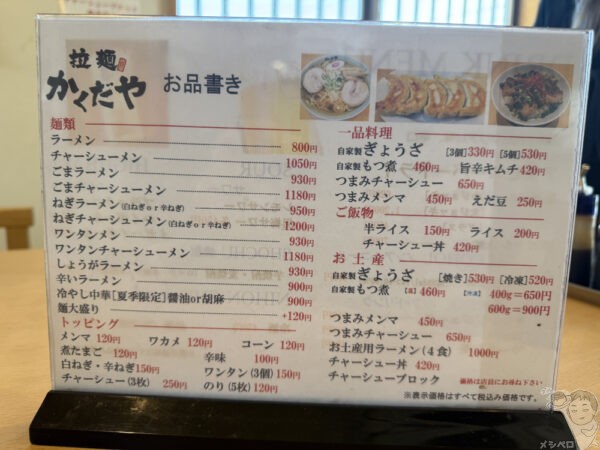 拉麺
かくだや
お品書き
麺類
ラーメン 800円
チャーシューメン 1050円
ごまラーメン 930円
ごまチャーシューメン 1180円
ねぎラーメン(白ねぎor辛ねぎ) 950円
ねぎチャーシューメン(白ねぎor辛ねぎ) 1200円
ワンタンメン 930円
ワンタンチャーシューメン 1180円
しょうがラーメン 930円
辛いラーメン 900円
冷やし中華[夏季限定]醤油or胡麻 900円
麺大盛り +120円
トッピング
メンマ 120円 ワカメ 120円 コーン 120円
煮たまご 120円 辛味 100円
白ねぎ・辛ねぎ150円 ワンタン(3個)150円
チャーシュー(3枚) 250円 のり(5枚)120円
一品料理
自家製ぎょうざ [3個]330円 [5個]530円
自家製もつ煮 460円 旨辛キムチ420円
つまみチャーシュー 650円
つまみメンマ 450円 えだ豆 250円
ご飯物
半ライス 150円 ライス 200円
チャーシュー丼 420円
お土産
自家製ぎょうざ [焼き]530円 [冷凍]520円
自家製もつ煮 [温]460円 [冷凍] 400g=650円
600g=900円
つまみメンマ 450円
つまみチャーシュー 650円
お土産用ラーメン(4食) 1000円
チャーシュー丼 420円
チャーシューブロック 価格は店員にお尋ね下さい
※表示価格はすべて税込み価格です。
メシペロ